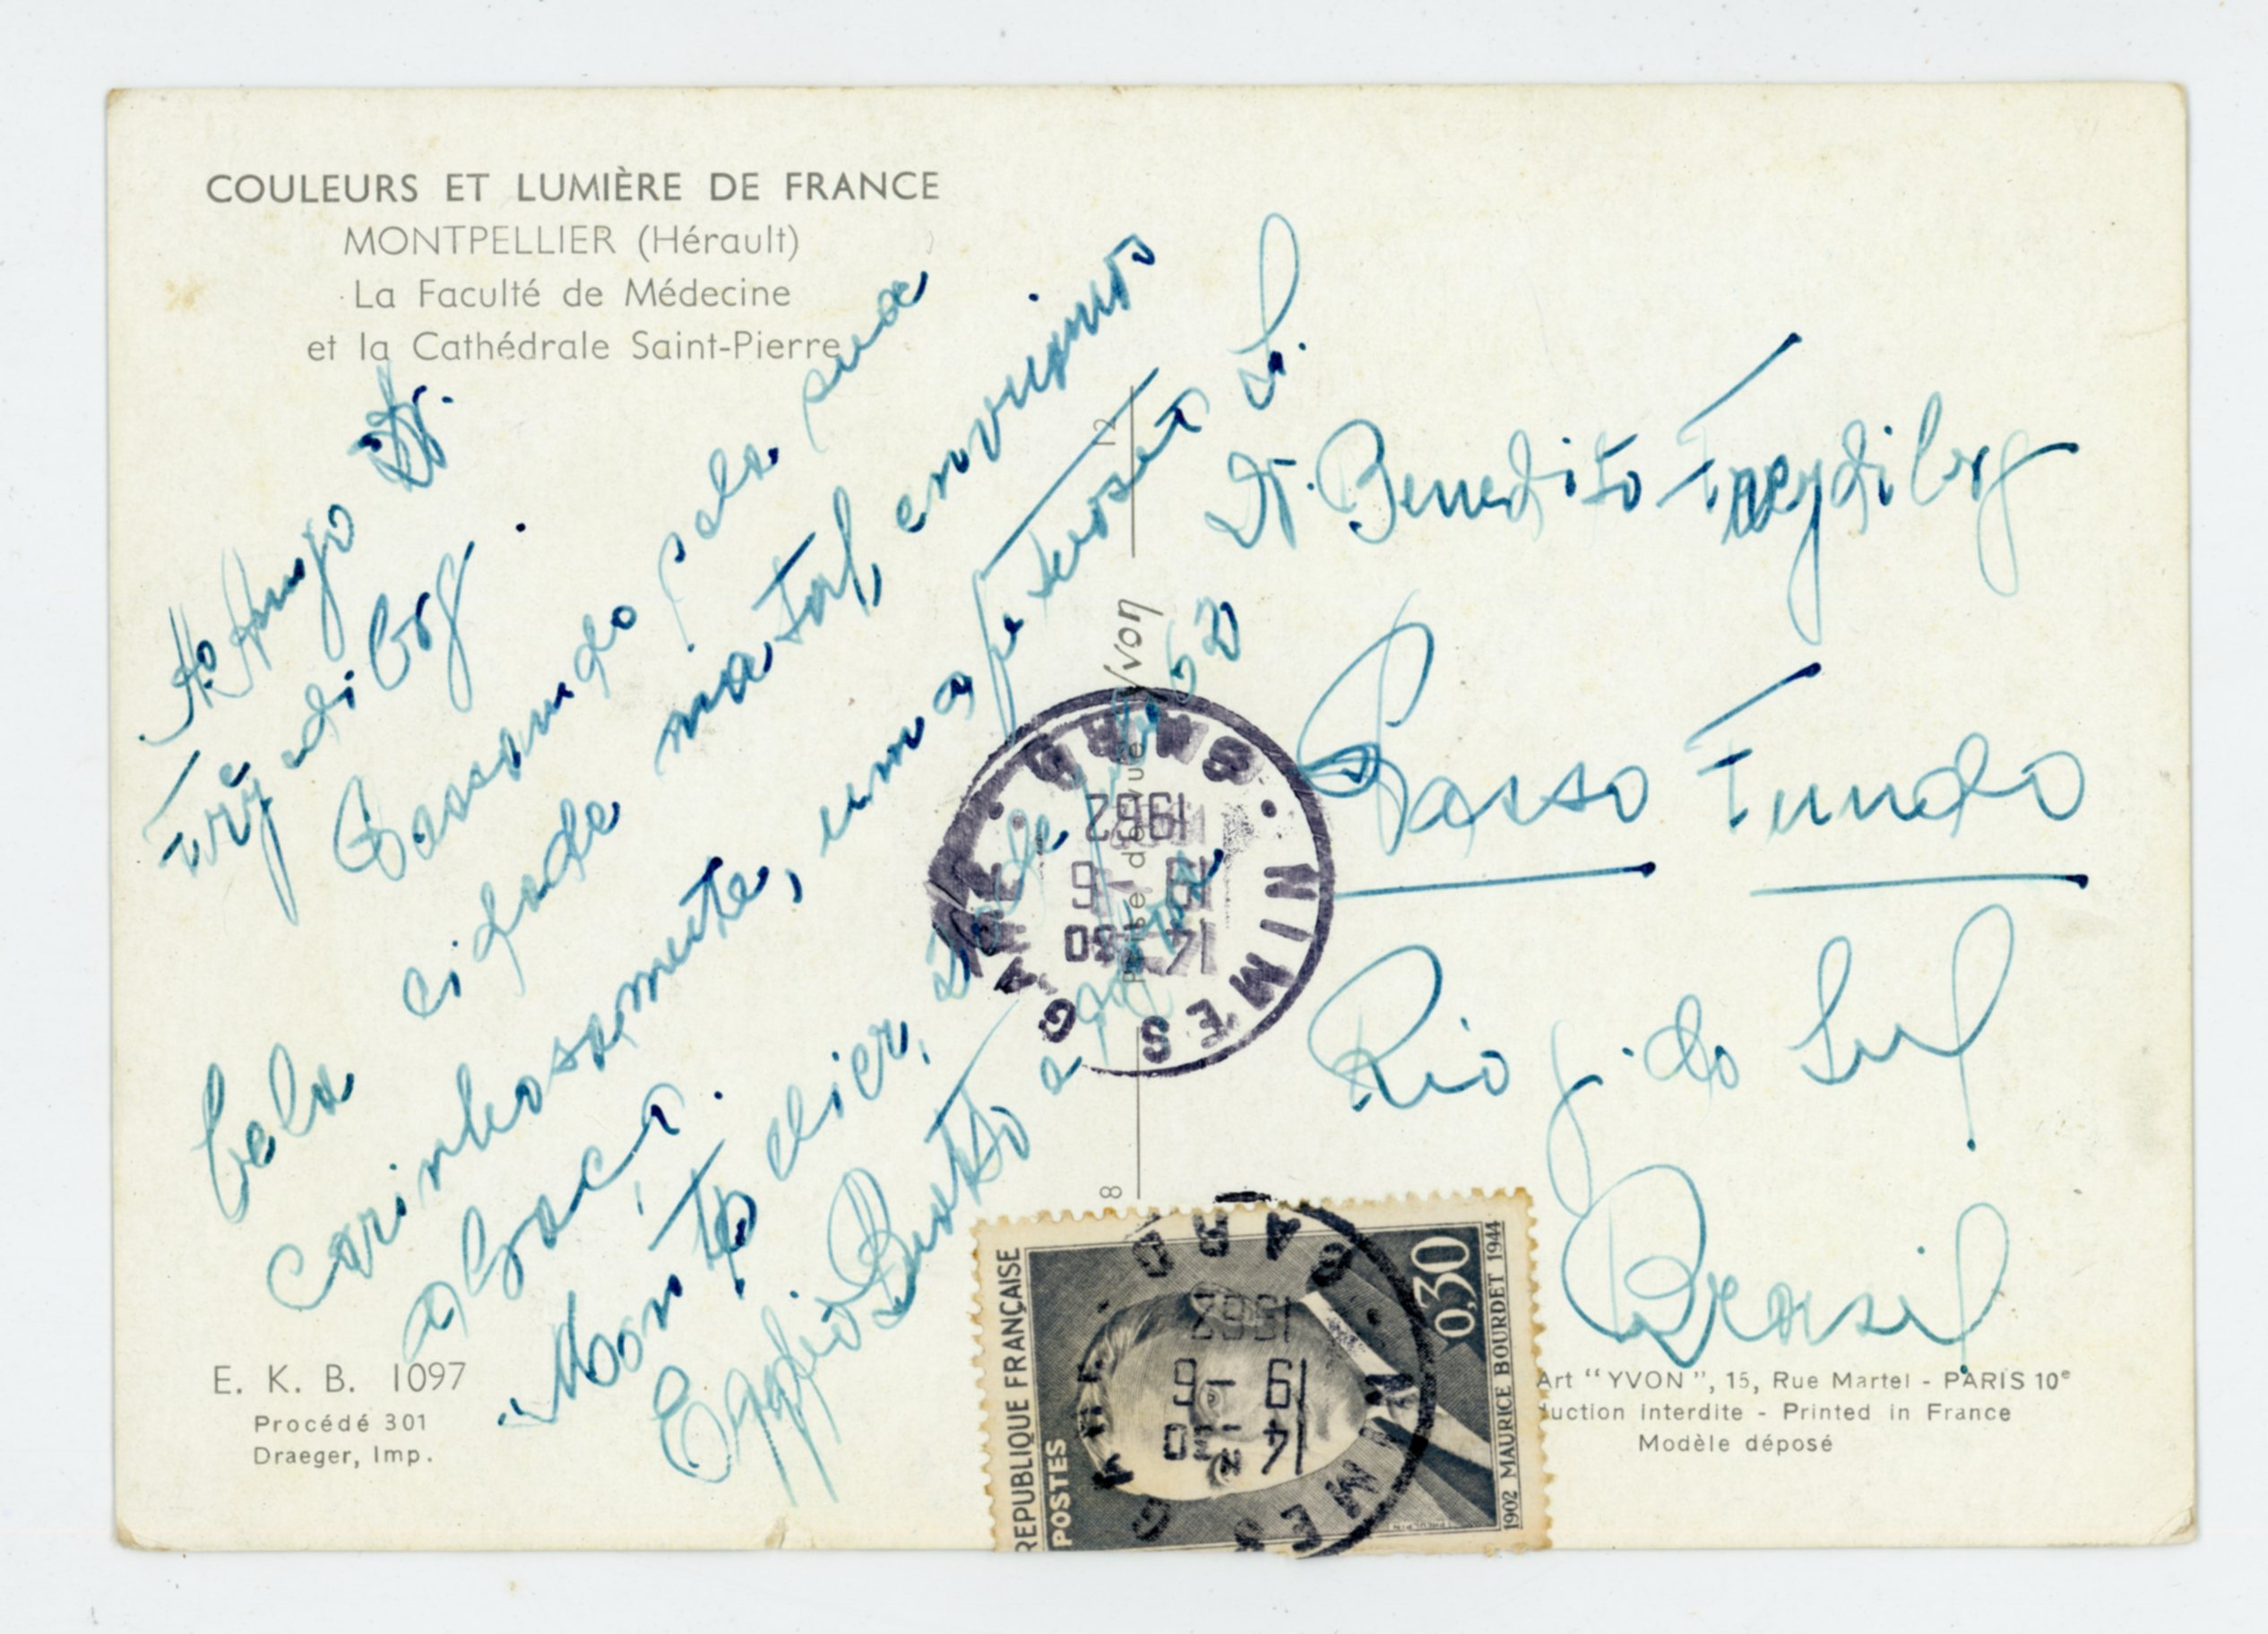 COULEURS ET LUMIÈRE DE FRANCE
MONTPELLIER (Hérault)
La Faculté de Médecine
et la Cathédrale Saint-Pierre
Ao Amigo Dr.
Passando pela sua
bela cidade natal, enviamos
carinhosamente, um afetuoso
abraço.
Montpellier, de 62
e
Sr.
Dr. Benedito
Passo Fundo
Rio g. do Sul
Brasil
12
Yvon
8
NIMES GARE
GARD
14-30
19-6
1962
REPUBLIQUE FRANÇAISE
POSTES
0,30
1902 MAURICE BOURDET 1944
NIMES GARE
GARD
14-30
19-6
1962
E. K. B. 1097
Procédé 301
Draeger, Imp.
Art "YVON", 15, Rue Martel - PARIS 10e
uction interdite - Printed in France
Modèle déposé